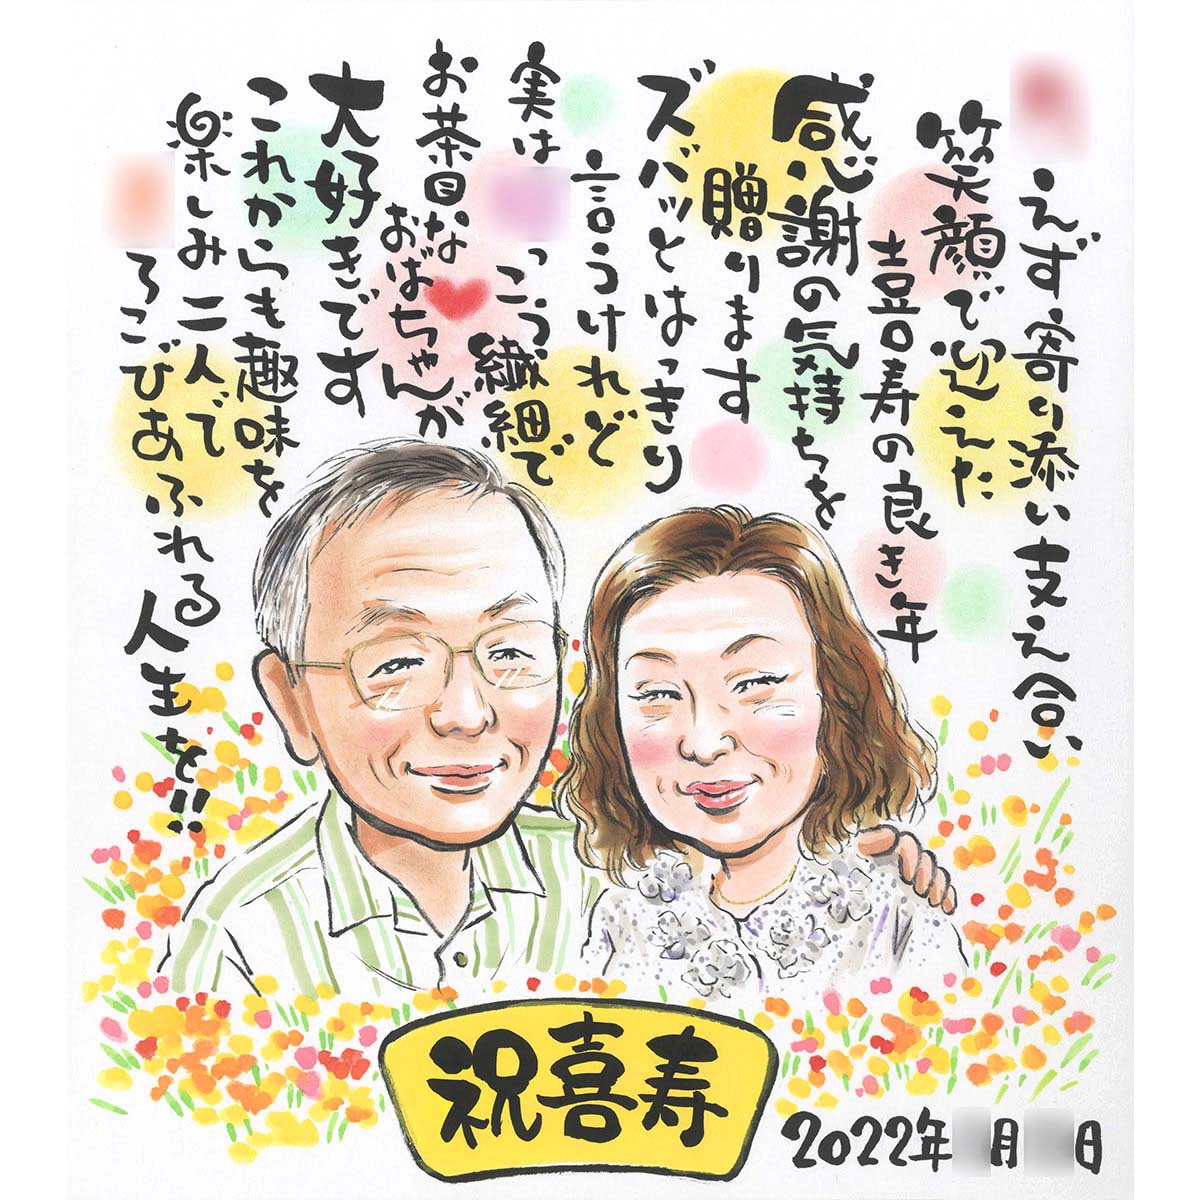 えず寄り添い支え合い
笑顔で迎えた
喜寿の良き年
感謝の気持ちを
贈ります
ズバッとはっきり
言うけれど
実は
っこう繊細で
お茶目な
おばちゃんが
大好きです
これからも趣味を
楽しみ二人で
ろこびあふれる
人生を!!
祝喜寿
2022年 月 日